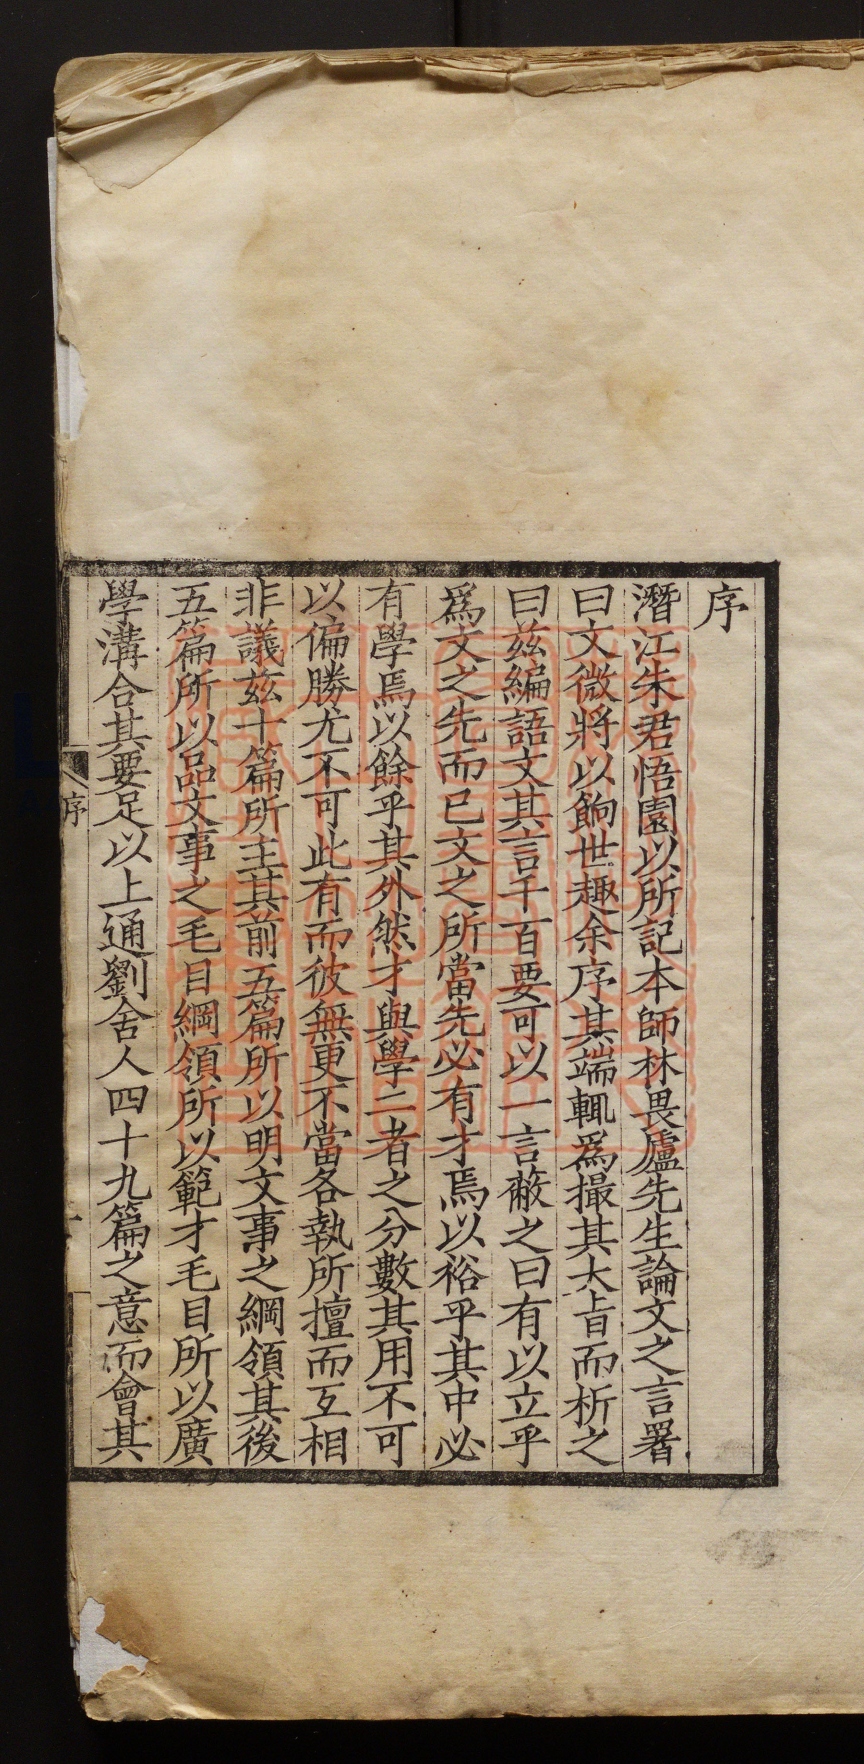 序
潛江朱君悟園以所記本師林畏廬先生論文之言署
曰文微將以餉世趣余序其端輒爲撮其大旨而析之
曰茲編語文其言千百要可以一言蔽之曰有以立乎
爲文之先而已文之所當先必有才焉以裕乎其中必
有學焉以餘乎其外然才與學二者之分數其用不可
以偏勝尤不可此有而彼無更不當各執所擅而互相
非議茲十篇所主其前五篇所以明文事之綱領其後
五篇所以品文事之毛目綱領所以範才毛目所以廣
學溝合其要足以上通劉舍人四十九篇之意而會其
序
一